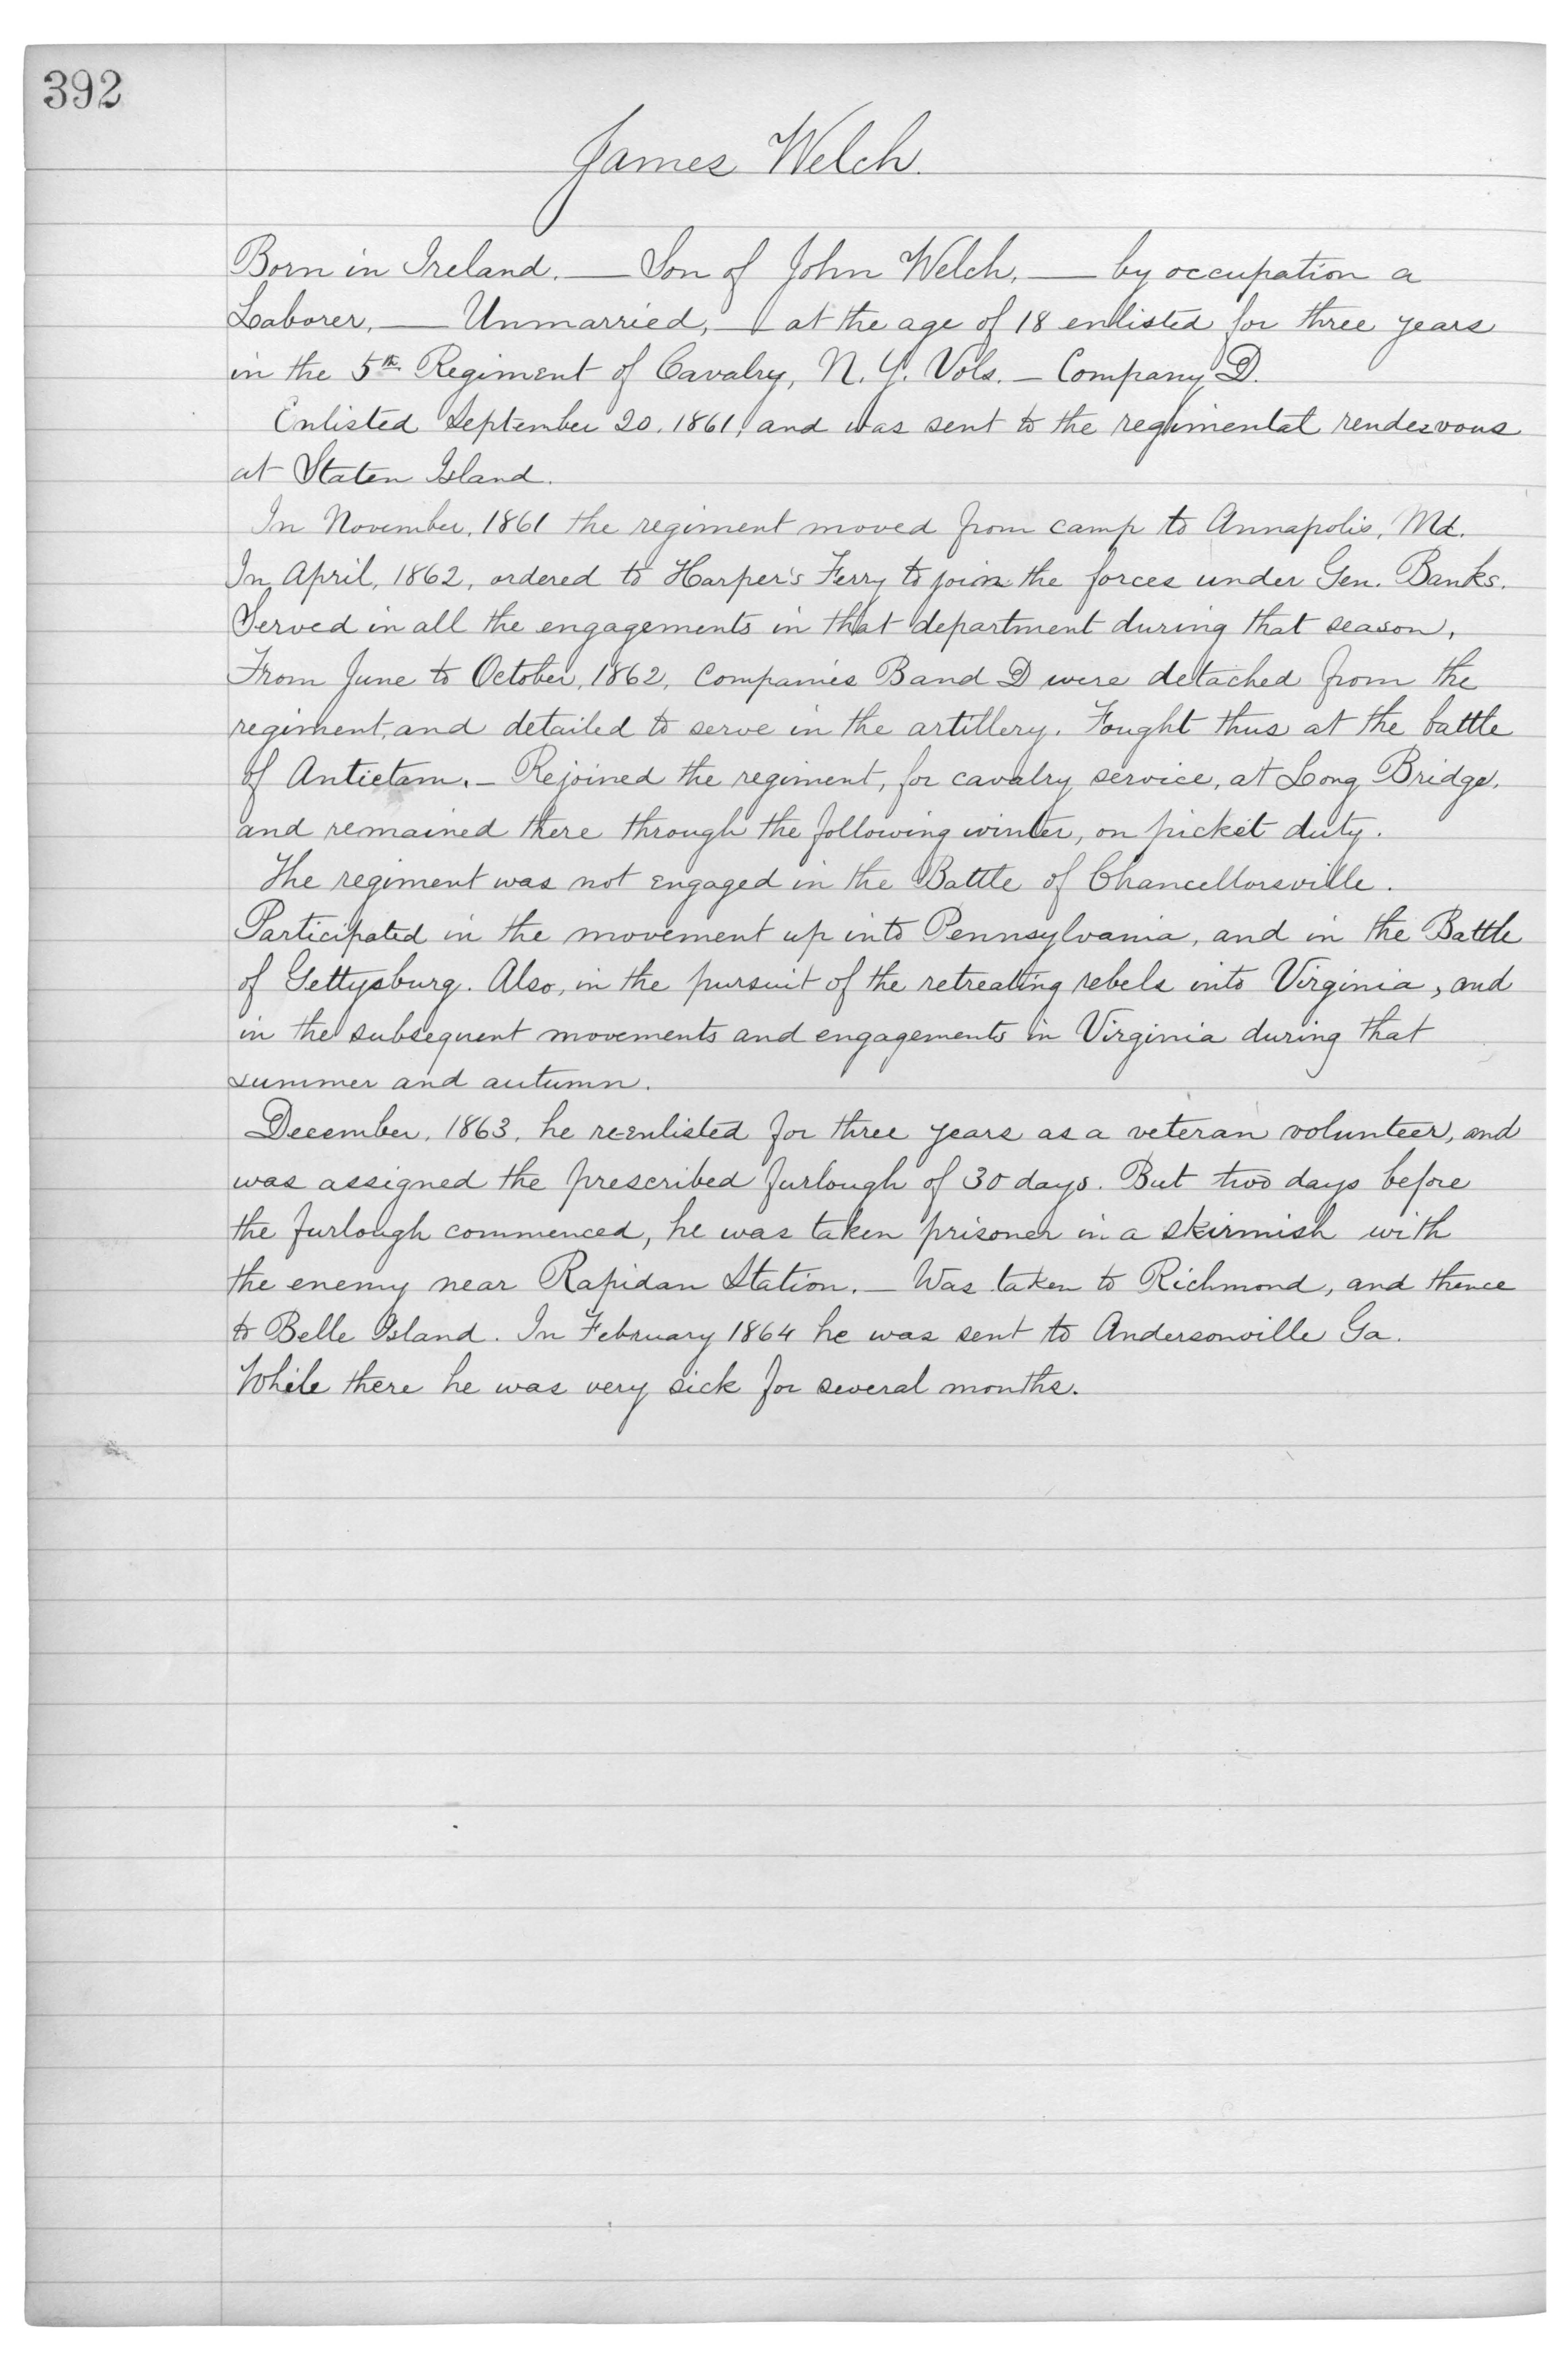 392
James Welch.
Born in Ireland. — Son of John Welch, — by occupation a
Laborer, — Unmarried, — at the age of 18 enlisted for three years
in the 5th Regiment of Cavalry, N. Y. Vols. — Company D.
Enlisted September 20, 1861, and was sent to the regimental rendezvous
at Staten Island.
In November, 1861 the regiment moved from camp to Annapolis, Md.
In April, 1862, ordered to Harper's Ferry to join the forces under Gen. Banks.
Served in all the engagements in that department during that season.
From June to October, 1862, Companies B and D were detached from the
regiment, and detailed to serve in the artillery. Fought thus at the battle
of Antietam. — Rejoined the regiment, for cavalry service, at Long Bridge,
and remained there through the following winter, on picket duty.
The regiment was not engaged in the Battle of Chancellorsville.
Participated in the movement up into Pennsylvania, and in the Battle
of Gettysburg. Also, in the pursuit of the retreating rebels into Virginia, and
in the subsequent movements and engagements in Virginia during that
summer and autumn.
December, 1863, he re-enlisted for three years as a veteran volunteer, and
was assigned the prescribed furlough of 30 days. But two days before
the furlough commenced, he was taken prisoner in a skirmish with
the enemy near Rapidan Station. — Was taken to Richmond, and thence
to Belle Island. In February 1864 he was sent to Andersonville Ga.
While there he was very sick for several months.